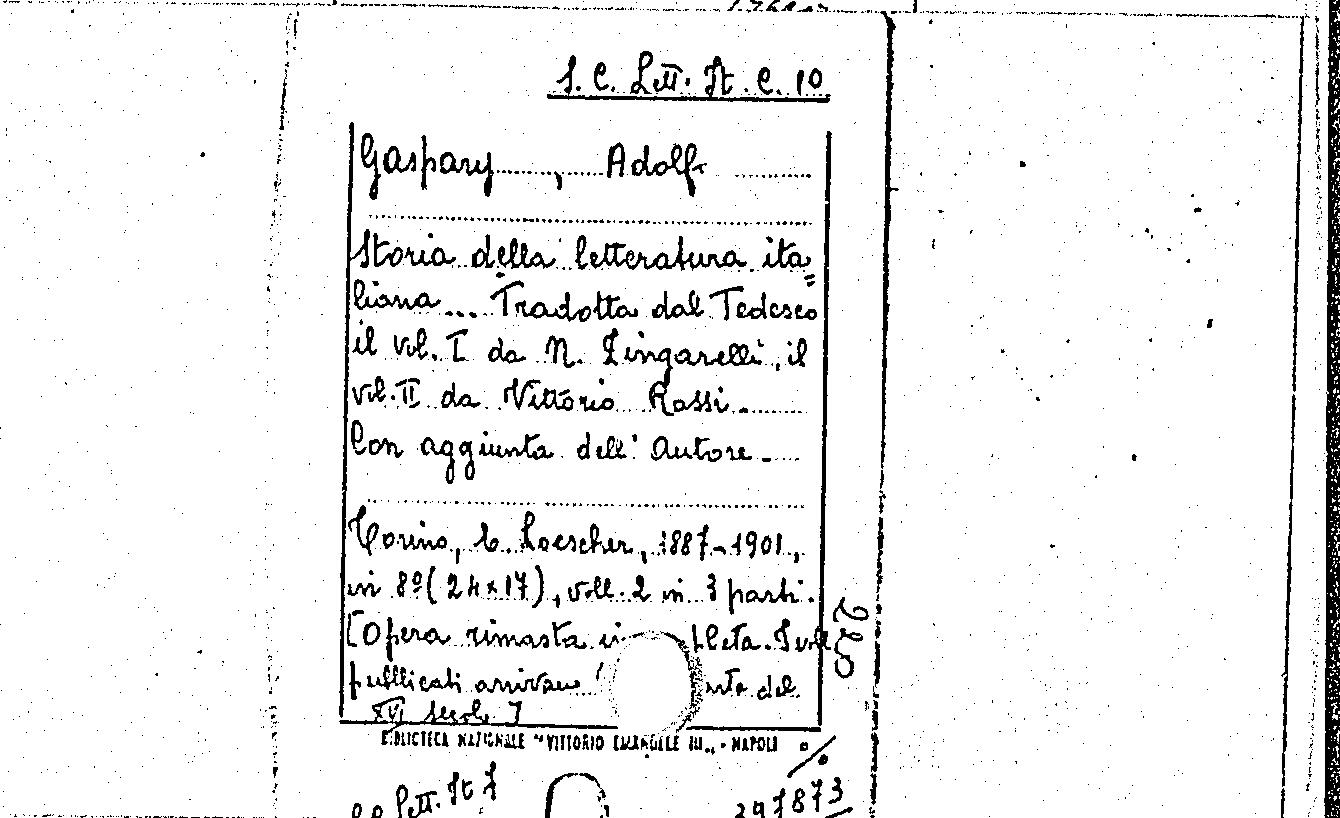 S. C. Lett. It. C. 10
Gaspary, Adolf
Storia della letteratura ita=
liana... Tradotta dal Tedesco
il vol. I da N. Zingarelli, il
vol. II da Vittorio Rossi.
Con aggiunta dell'Autore.
Torino, E. Loescher, 1887-1901,
in 8º (24x17), voll. 2 in 3 parti.
[Opera rimasta in pleta. I voll.
pubblicati arrivano del
XVI secolo]
220
BIBLIOTECA NAZIONALE "VITTORIO EMANUELE III" - NAPOLI
Lett. It
397873